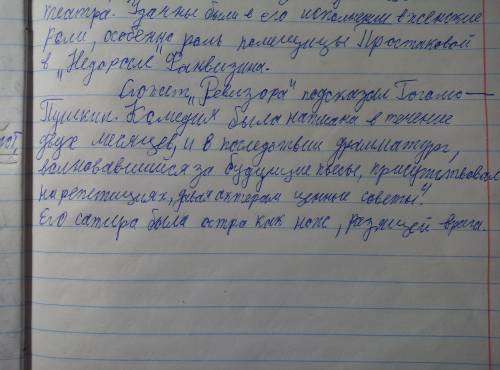 театра. Удачны были в его исполнении в женские
роли, особенно роль помещицы Простаковой
в „Недоросле" Фанвизина.
Сюжет „Ревизора" подсказал Гоголю—
Пушкин. Комедия была написана в течение
двух месяцев, и в последствии драмматург,
волновавшийся за будующие пьесы, присутствовал
на репетициях, давая актерам ценные советы".
Его сатира была остра как нож, разящей врага.